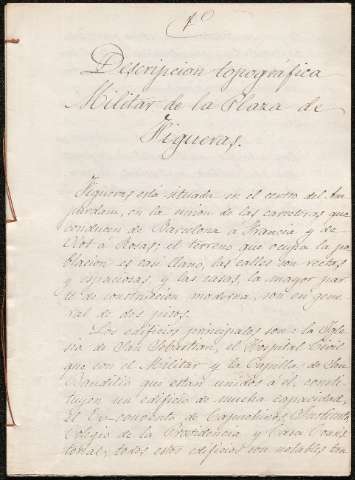 1º
Descripcion topográfica
Militar de la Plaza de
Figueras.
Figueras está situada en el centro del Am
purdan, en la union de las carreteras que
conducen de Barcelona á Francia y de
Olot á Rosas; el terreno que ocupa la po
blacion es casi llano, las calles son rectas
y espaciosas, y las casas, la mayor par
te de construccion moderna, son en gene
ral de dos pisos.
Los edificios principales son: la Igle
sia de San Sebastian, el Hospital Civil
que con el Militar y la Capilla de San
Baudilio que están unidos á el consti
tuyen un edificio de mucha capacidad,
El Ex-convento de Capuchinos, Instituto,
Colegio de la Providencia y Casa Consis
torial; todos estos edificios son notables tan